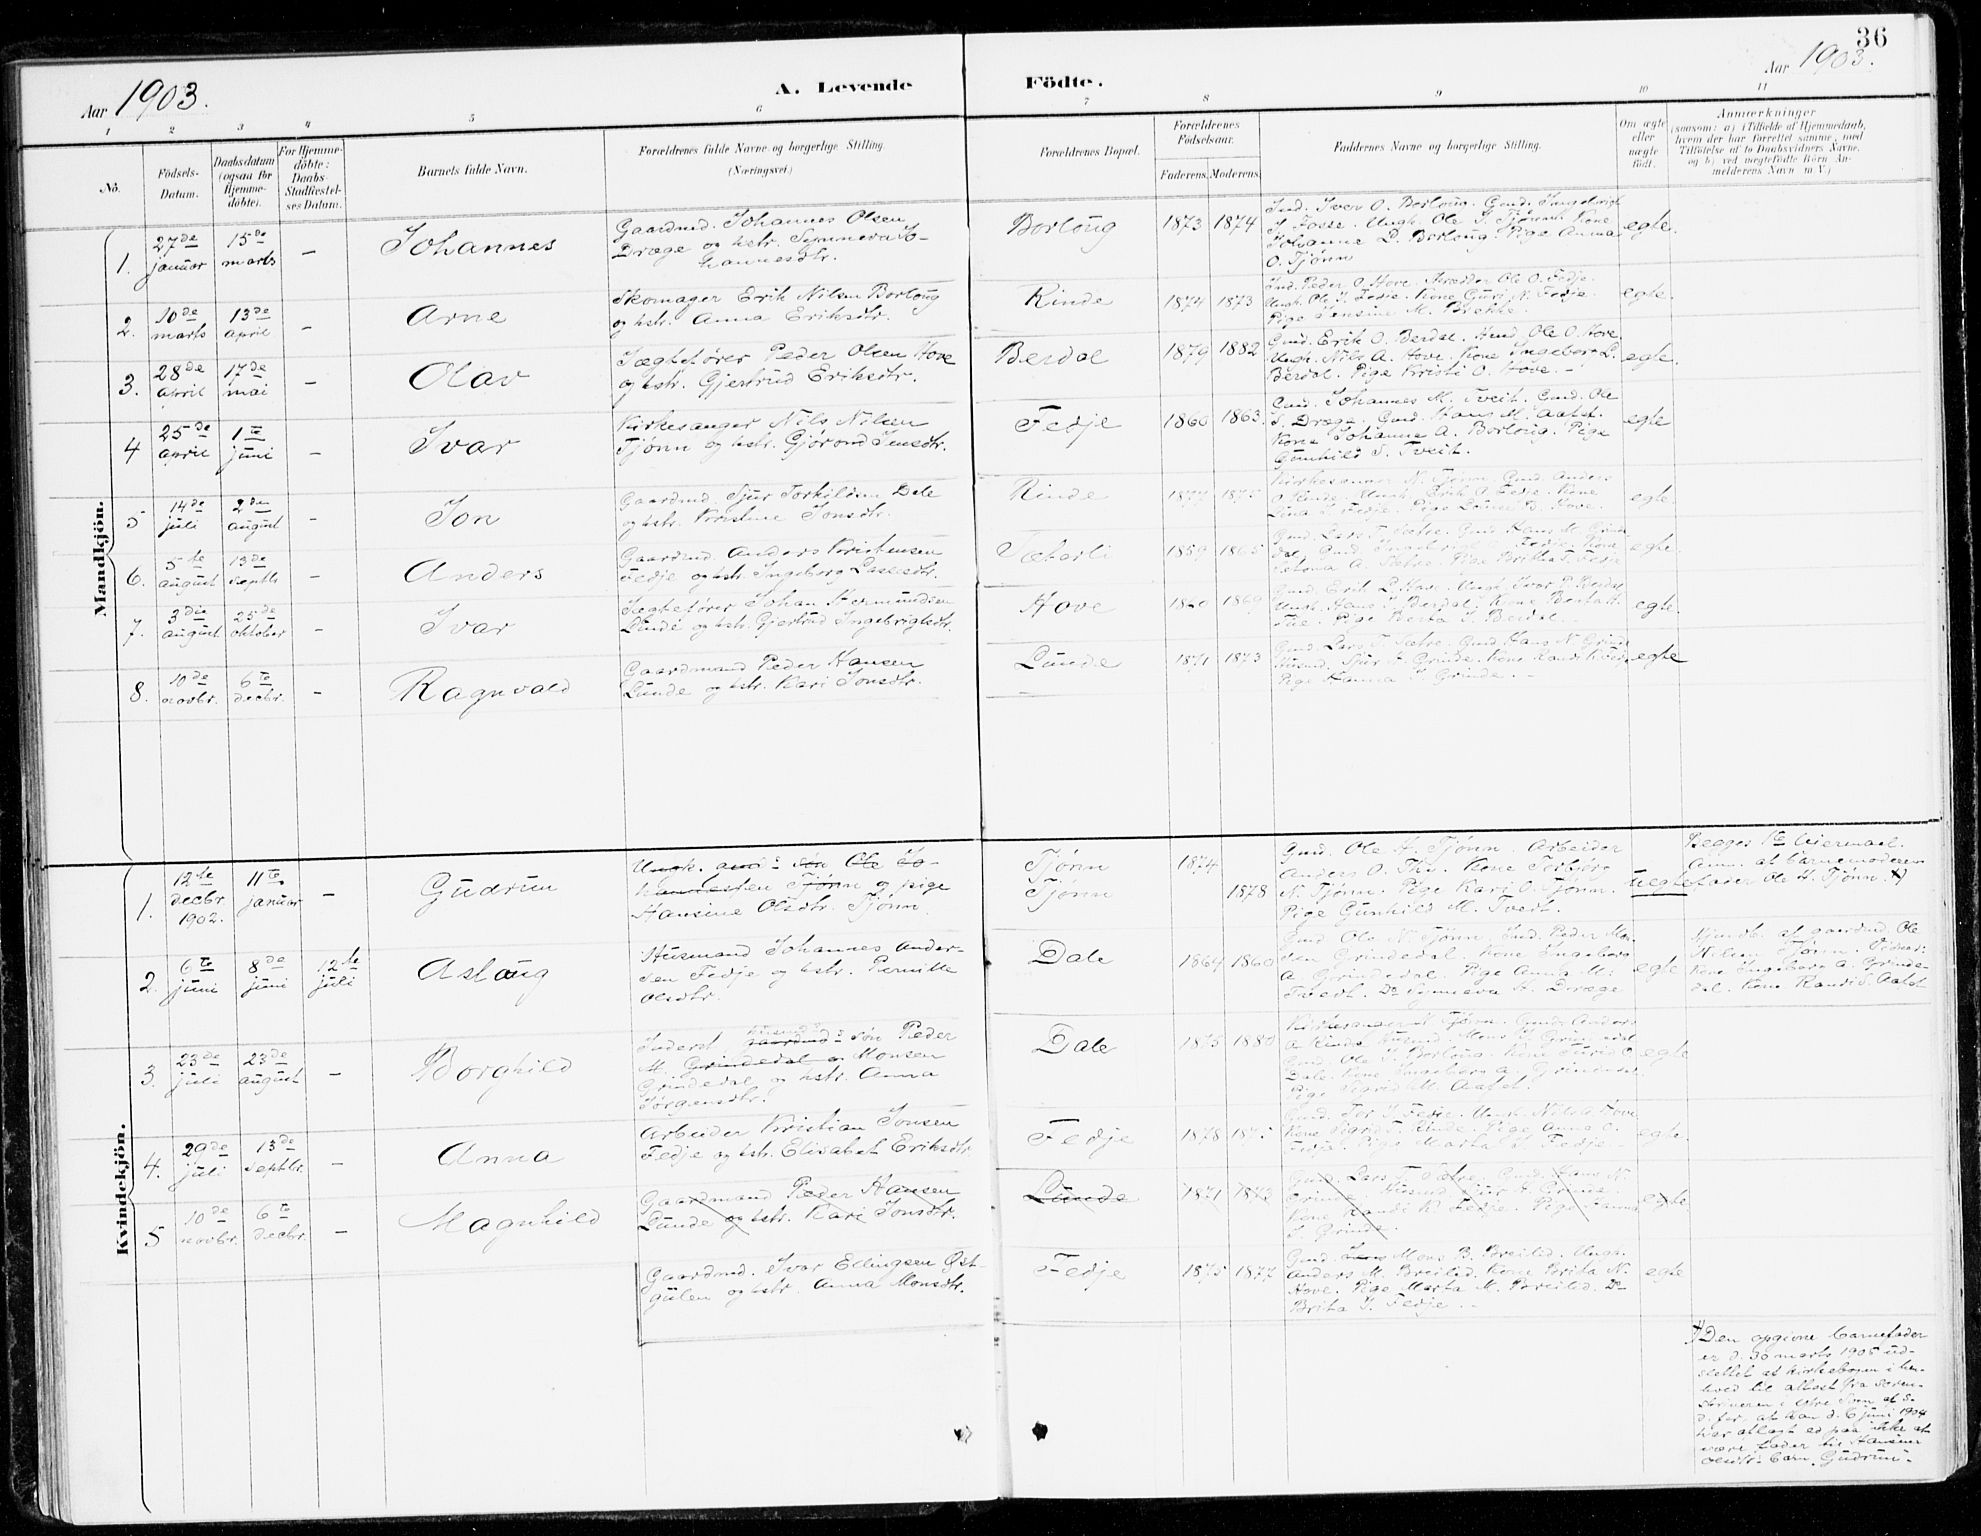 36
Aar 1903.
A. Levende Födte.
Aar 1903.
1 2 3 4 5 6 7 8 9 10 11
No.
Födsels-
Datum.
Daabsdatum
(ogsaa for
Hjemme-
döbte).
For Hjemme-
döbte:
Daabs-
Stadfæstel-
ses Datum.
Barnets fulde Navn.
Forældrenes fulde Navne og borgerlige Stilling.
(Næringsvei.)
Forældrenes Bopæl.
Forældrenes
Födselsaar.
Faderens. Moderens.
Faddernes Navne og borgerlige Stilling.
Om ægte
eller
uægte
födt.
Anmærkninger
(saasom: a) i Tilfælde af Hjemmedaab,
hvem der har forrettet samme, med
Tilföielse af to Daabsvidners Navne,
og b) ved uegtefödte Börn An-
melderens Navn m. V.)
Mandkjön.
1.
27de
januar
15de
marts
-
Johannes
Gaardmd. Johannes Olsen
Dræge og hstr. Synneva Jo-
hannesdtr.
Borlaug
1873 1874
Ind. Iver O. Borlaug. Gmd. Ingebrigt
J. Fosse. Ungk. Ole J. Tjønn. Kone
Johanne L. Borlaug. Pige Anna
O. Tjønn
egte.
2.
10de
marts
13de
april
-
Arne
Skomager Erik Nilsen Borlaug
og hstr. Anna Eriksdtr.
Rinde
1874 1873
Ind. Peder O. Hove. Skrædder Ole O. Fedje.
Ungk. Ole J. Fedje. Kone Guri N. Fedje.
Pige Jensine M. Brekke.
egte.
3.
28de
april
17de
mai
-
Olav
Jægtefører Peder Olsen Hove
og hstr. Gjertrud Eriksdtr.
Berdal
1879 1882
Gmd. Erik O. Berdal. Hmd. Ole O. Hove
Ungk. Nils A. Hove. Kone Ingeborg L.
Berdal. Pige Kristi O. Hove. -
egte.
4
25de
april
1te
juni
-
Ivar
Kirkesanger Nils Nilsen
Tjønn og hstr. Gjørond Jensdtr.
Fedje
1860 1863.
Gmd. Johannes M. Tveit. Gmd. Ole
S. Dræge. Gmd. Hans M. Aafet.
Kone Johanne A. Borlaug. Pige
Gunhild S. Tveit.
egte
5
14de
juli
2den
august
-
Jon
Gaardmd. Sjur Torkildsen Dale
og hstr. Kristine Jonsdtr.
Rinde
1877 1875
Kirkesanger N. Tjønn. Gmd. Anders
O. Rinde. Ungk. Erik O. Fedje. Kone
Lina J. Fedje. Pige Louise O. Hove.
egte.
6.
5te
august
13de
septbr
-
Anders
Gaardmd. Anders Kristensen
Fedje og hstr. Ingeborg Lassesdtr.
Sæterli
1859 1865
Gmd. Lars T. Sætre. Gmd. Hans M. Grinde
egte.
7.
3die
august
25de
oktober
-
Ivar
Jægtefører Johan Hermundsen
Lunde og hstr. Gjertrud Ingebrigtsdtr.
Hove
1860 1869
Gmd. Erik L. Hove. Ungk. Ivar P. Berdal
Ungk. Hans J. Berdal. Kone Berta H.
Thue. Pige Berta J. Berdal.
egte.
8.
10de
novbr.
6te
decbr.
-
Ragnvald
Gaardmand Peder Hansen
Lunde og hstr. Kari Jonsdtr.
Lunde
1871 1873
Gmd. Lars T. Sætre. Gmd. Hans N. Grinde
Husmd. Sjur H. Grinde. Kone Randi K. Fedje
Pige Hanna J. Grinde. -
egte
Kvindekjön.
1.
12te
decbr
1902.
11te
januar
-
Gudrun
Ungk. gmd's søn Ole Jo-
hannessen Tjønn og pige
Hansine Olsdtr. Tjønn.
Tjønn
Tjønn
1874
1878
Gmd. Ole H. Tjønn. Arbeider
Anders O. Thy. Kone Torbjør
N. Tjønn. Pige Kari O. Tjønn.
Pige Gunhild M. Tveit.
uegte
Begges 1te leiermaal.
Anm. af barnemoderens
fader Ole H. Tjønn. x)
2.
6te
juni
8de
juni
12te
juli
Aslaug
Husmand Johannes Ander-
sen Fedje og hstr. Pernille
Olsdtr.
Dale
1864 1860
Gmd Ole N. Tjønn. Ind. Peder Mon-
sen Grindedal. Kone Ingeborg
A. Grindedal. Pige Anna M.
Tveit. Do Synneva H. Dræge
egte
Hjmdbt. af gaardmd. Ole
Nilsen Tjønn. Vidner:
Kone Ingeborg A. Grinde-
dal. Kone Randi S. Aafet
3.
23de
juli
23de
august
-
Borghild
husmd's
Inderst gaardmd's søn Peder
M. Grindedal og Monsen
Grindedal og hstr. Anna
Jørgensdtr.
Dale
1875 1880
Kirkesanger N. Tjønn. Gmd. Anders
A. Rinde. Husmd. Mons J. Grindedal
Gmd. Ole J. Borlaug. Kone Turid O.
Dale. Kone Ingeborg A. Grindedal.
Pige Sigrid M. Aafet.
egte
4.
29de
juli
13de
septbr.
-
Anna
Arbeider Kristian Jonsen
Fedje og hstr. Elisabet Eriksdtr.
Fedje
1878 1875
Gmd. Tor J. Fedje. Ungk. Nils A. Hove
Kone Sigrid T. Rinde. Pige Anna O.
Fedje. Pige Marta J. Fedje.
egte.
5
10de
novbr.
6te
decbr.
-
Magnhild
Gaardmand Peder Hansen
Lunde og hstr. Kari Jonsdtr.
Lunde
1871 1873
Gmd. Lars T. Sætre. Gmd. Hans N.
Grinde. Husmd Sjur H. Grinde
Kone Randi K. Fedje. Pige Hanna
J. Grinde.
egte
Gaardmd. Ivar Ellingsen Øst-
gulen og hstr. Anna Monsdtr.
Fedje
1875 1877
Gmd. Mons B. Breilid. Ungk.
Anders M. Breilid. Kone Brita N.
Hove. Pige Marta M. Breilid. Do
Brita J. Fedje. -
egte
x) Den opgivne barnefader
er d. 30 marts 1905 ud-
slettet af kirkebogen i hen-
hold til attest fra soren-
skriveren i Ytre Sogn af s.
d. for, at han d. 6 juni 1904
har aflagt ed paa ikke at
være fader til Hansine
Olsdtr. barn, Gudrun.